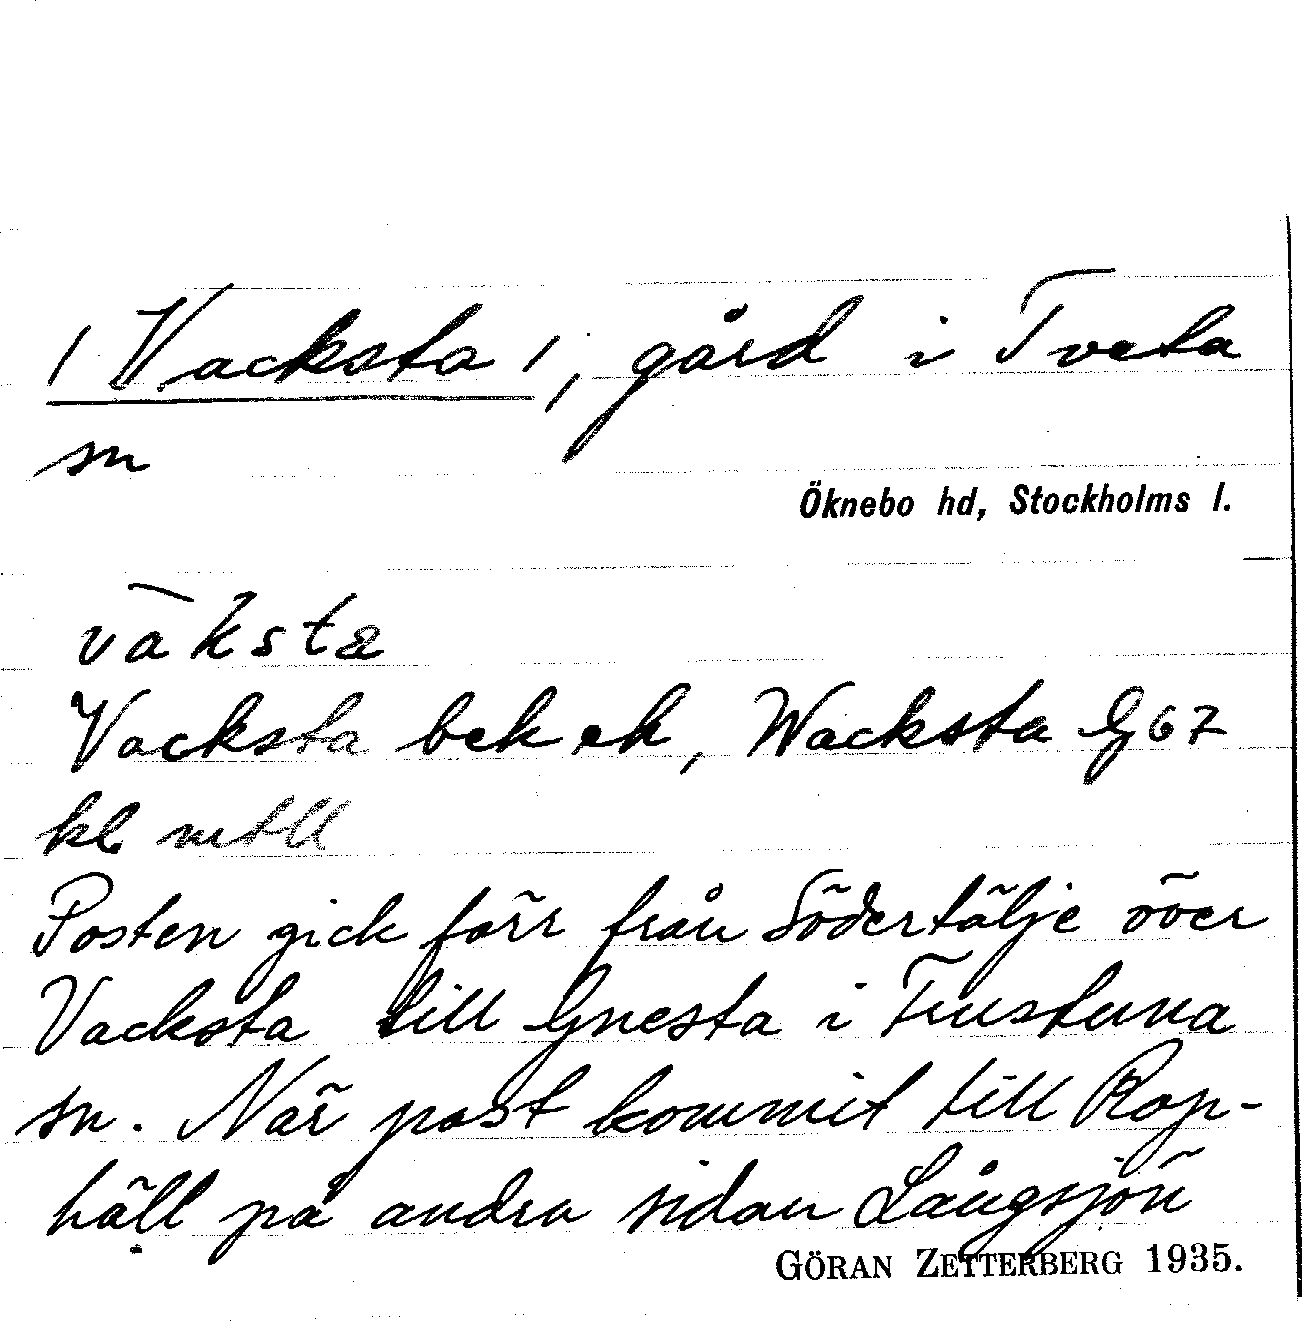 /Vacksta/, gård i Tveta
sn
Öknebo hd, Stockholms l.
väksta
Vacksta bek ek, Wacksta G67
kl mtll
Posten gick förr från Södertälje över
Vacksta till Gnesta i Frustuna
sn. När post kommit till Rop-
häll på andra sidan Långsjön
GÖRAN ZETTERBERG 1935.